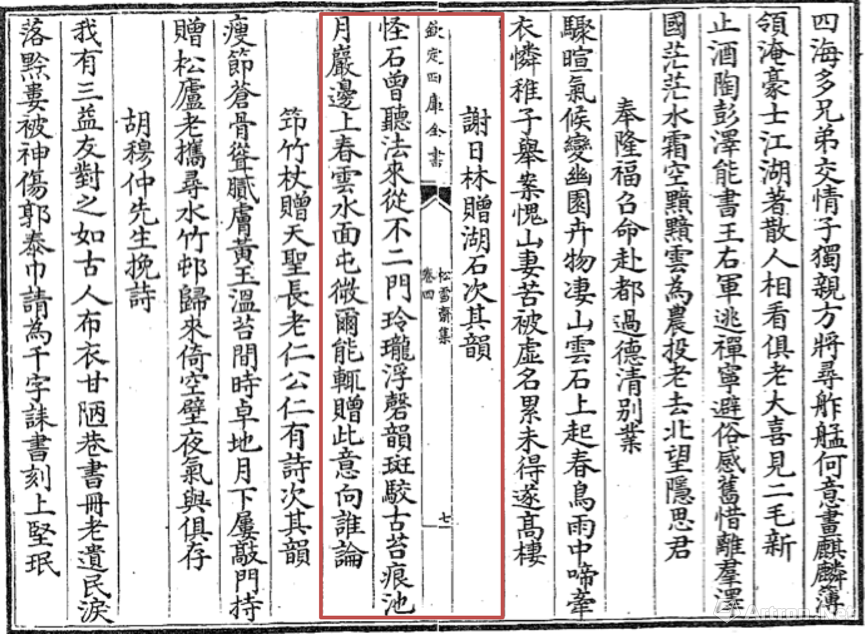 四海多兄弟交情子獨親方將尋舴艋何意畫麒麟簿
領淹豪士江湖著散人相看俱老大喜見二毛新
止酒陶彭澤能書王右軍逃禪寧避俗感舊惜離羣澤
國茫茫水霜空黯黯雲為農投老去北望隱思君
奉隆福召命赴都過德清别業
驟暄氣候變幽園卉物凄山雲石上起春鳥雨中啼牽
衣憐稚子舉案愧山妻苦被虛名累未得遂髙棲
謝日林贈湖石次其韻
欽定四庫全書
松雪齋集
卷四
七
怪石曾聽法來從不二門玲瓏浮磬韻斑駮古苔痕池
月巖邊上春雲水面屯微爾能輒贈此意向誰論
笻竹杖贈天聖長老仁公仁有詩次其韻
瘦節蒼骨聳膩膚黃玉溫苔間時卓地月下屢敲門持
贈松廬老攜尋水竹邨歸來倚空壁夜氣與俱存
胡穆仲先生挽詩
我有三益友對之如古人布衣甘陋巷書冊老遺民淚
落黔婁被神傷郭泰巾請為千字誄書刻上堅珉
Artron.Net